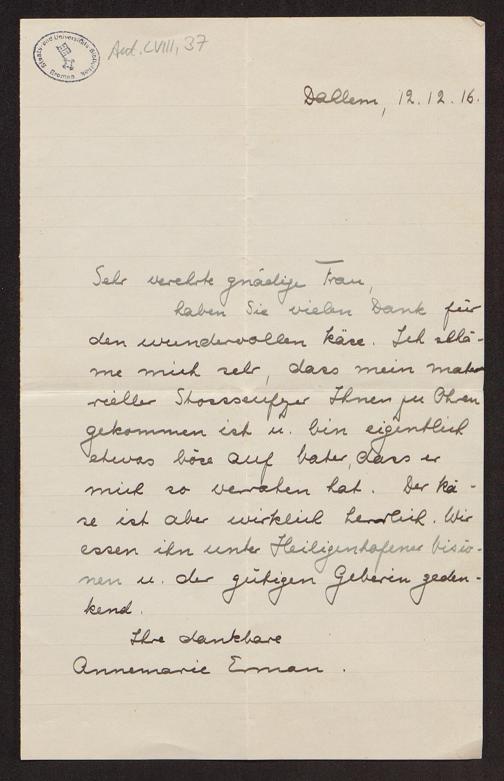 Staats- und Universitäts Bibliothek
Bremen
Aut. LVIII, 37
Dahlem, 12.12.16.
Sehr verehrte gnädige Frau,
haben Sie vielen Dank für
den wundervollen Käse. Ich schä-
me mich sehr, dass mein mate-
rieller Stossseufzer Ihnen zu Ohren
gekommen ist u. bin eigentlich
etwas böse auf Vater, dass er
mich so verraten hat. Der Kä-
se ist aber wirklich herrlich. Wir
essen ihn unter Heiligenhafener Visio-
nen u. der gütigen Geberin geden-
kend.
Ihre dankbare
Annemarie Erman.